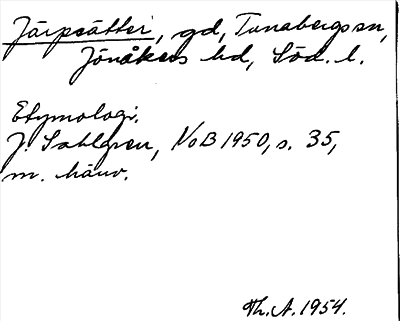 Järpsätter, gd, Tunabergs sn,
Jönåkers hd, Söd. l.
Etymologi.
J. Sahlgren, NoB 1950, s. 35,
m. hänv.
Th. A. 1954.